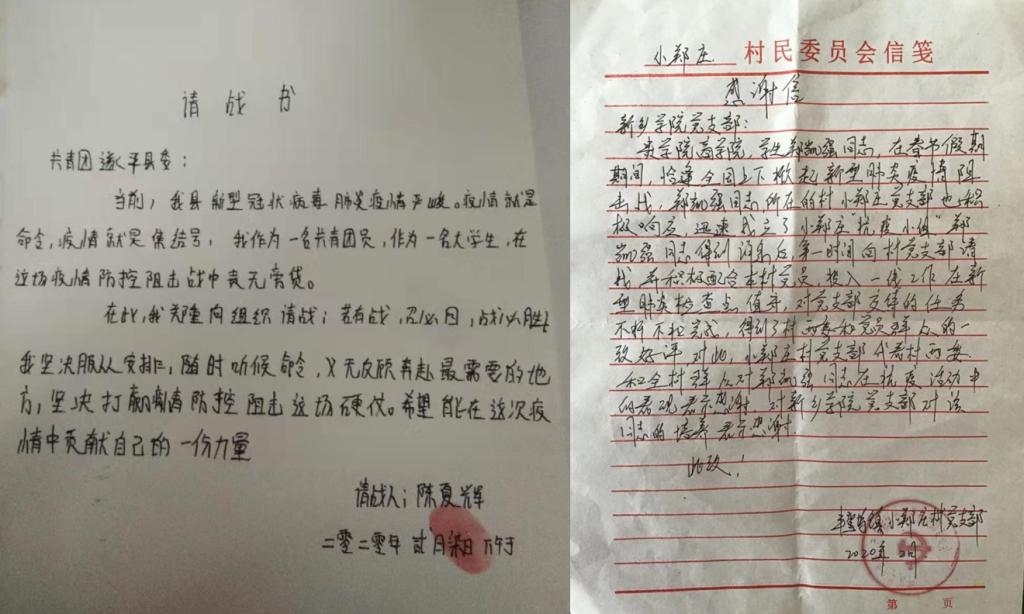 请战书
共青团遂平县委:
当前,我县新型冠状病毒肺炎疫情严峻。疫情就是
命令,疫情就是集结号,我作为一名共青团员,作为一名大学生,在
这场疫情防控阻击战中责无旁贷。
在此,我郑重向组织请战;若有战,召必回,战必胜!
我坚决服从安排,随时听候命令,义无反顾奔赴最需要的地
方,坚决打赢疫情防控阻击这场硬仗。希望能在这次疫
情中贡献自己的一份力量
请战人:陈夏辉
二零二零年 月 日
小郑庄 村民委员会信笺
感谢信
新乡学院党支部:
贵学院商学院,学生郑凯强同志,在春节假期
期间,恰逢全国上下掀起新型肺炎疫情阻
击战,郑凯强同志所在的村小郑庄党支部也积
极响应,迅速成立了小郑庄“抗疫小组”郑
凯强同志得到消息后,第一时间向村党支部请
战并积极配合本村党员,投入一线工作在新
型肺炎检查点值守,对党支部安排的任务
不折不扣完成,得到了村两委和党员群众的一
致好评 对此,小郑庄村党支部代表村两委
和全村群众对郑凯强同志在抗疫活动中
的表现表示感谢,对新乡学院党支部对该
同志的培养表示感谢
此致!
小郑庄村党支部
2020年2月
第 页